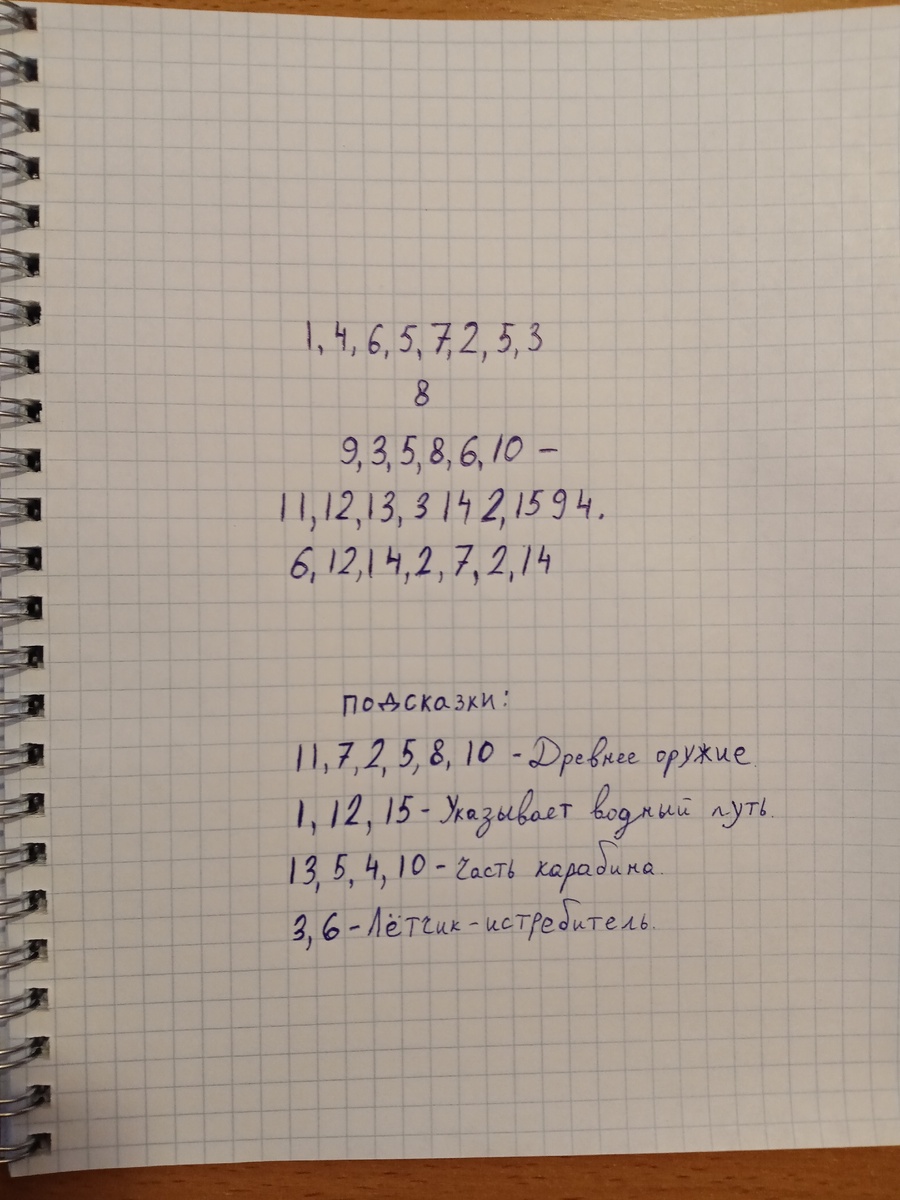 1, 4, 6, 5, 7, 2, 5, 3
8
9, 3, 5, 8, 6, 10 -
11, 12, 13, 3 14 2, 15 9 4.
6, 12, 14, 2, 7, 2, 14
подсказки:
11, 7, 2, 5, 8, 10 - Древнее оружие.
1, 12, 15 - Указывает водный путь.
13, 5, 4, 10 - Часть карабина.
3, 6 - Лётчик-истребитель.